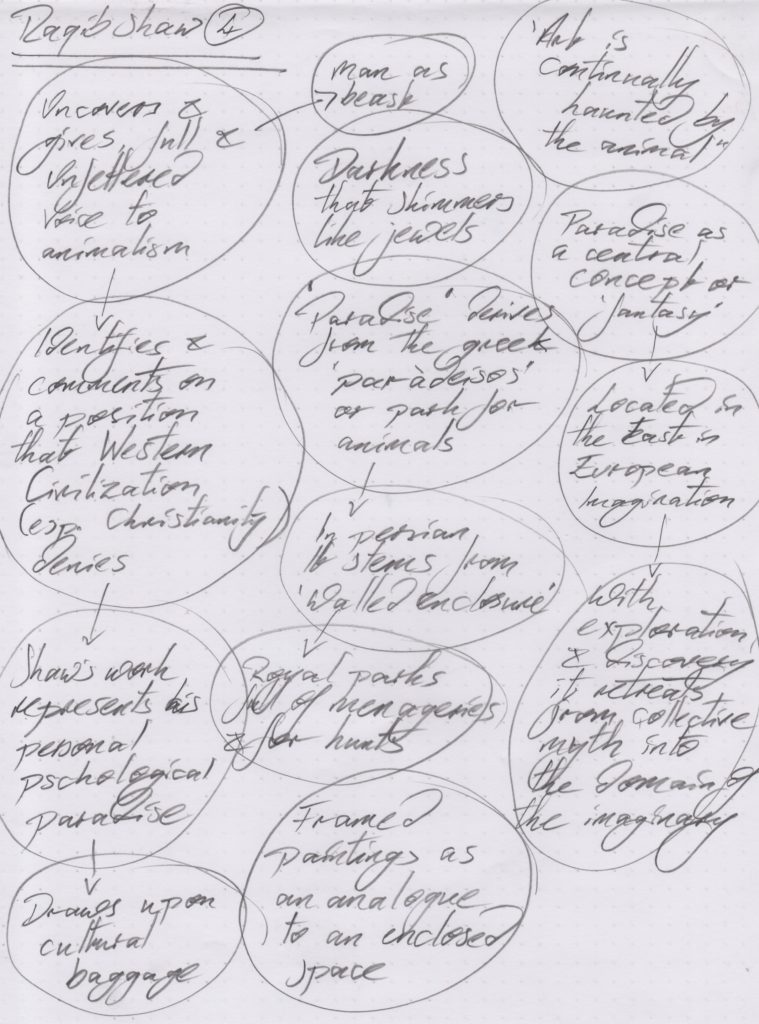 Raqib Shaw 4
Uncovers &
gives full &
unfettered
voice to
animalism
Identifies &
comments on
a position
that Western
Civilization
(esp. Christianity)
denies
Shaw's work
represents his
personal
pschological
paradise
Draws upon
cultural
baggage
man as
beast
Darkness
that shimmers
like jewels
'Paradise' derives
from the greek
'paràdeisos'
or park for
animals
In persian
it stems from
'walled enclosure'
Royal parks
full of menageries
& for hunts
Framed
paintings as
an analogue
to an enclosed
space
'Art is
continually
haunted by
the animal"
Paradise as
a central
concept or
'fantasy'
Located in
the East in
European
Imagination
With
exploration
& discovery
it retreats
from collective
myth into
the domain of
the imaginary